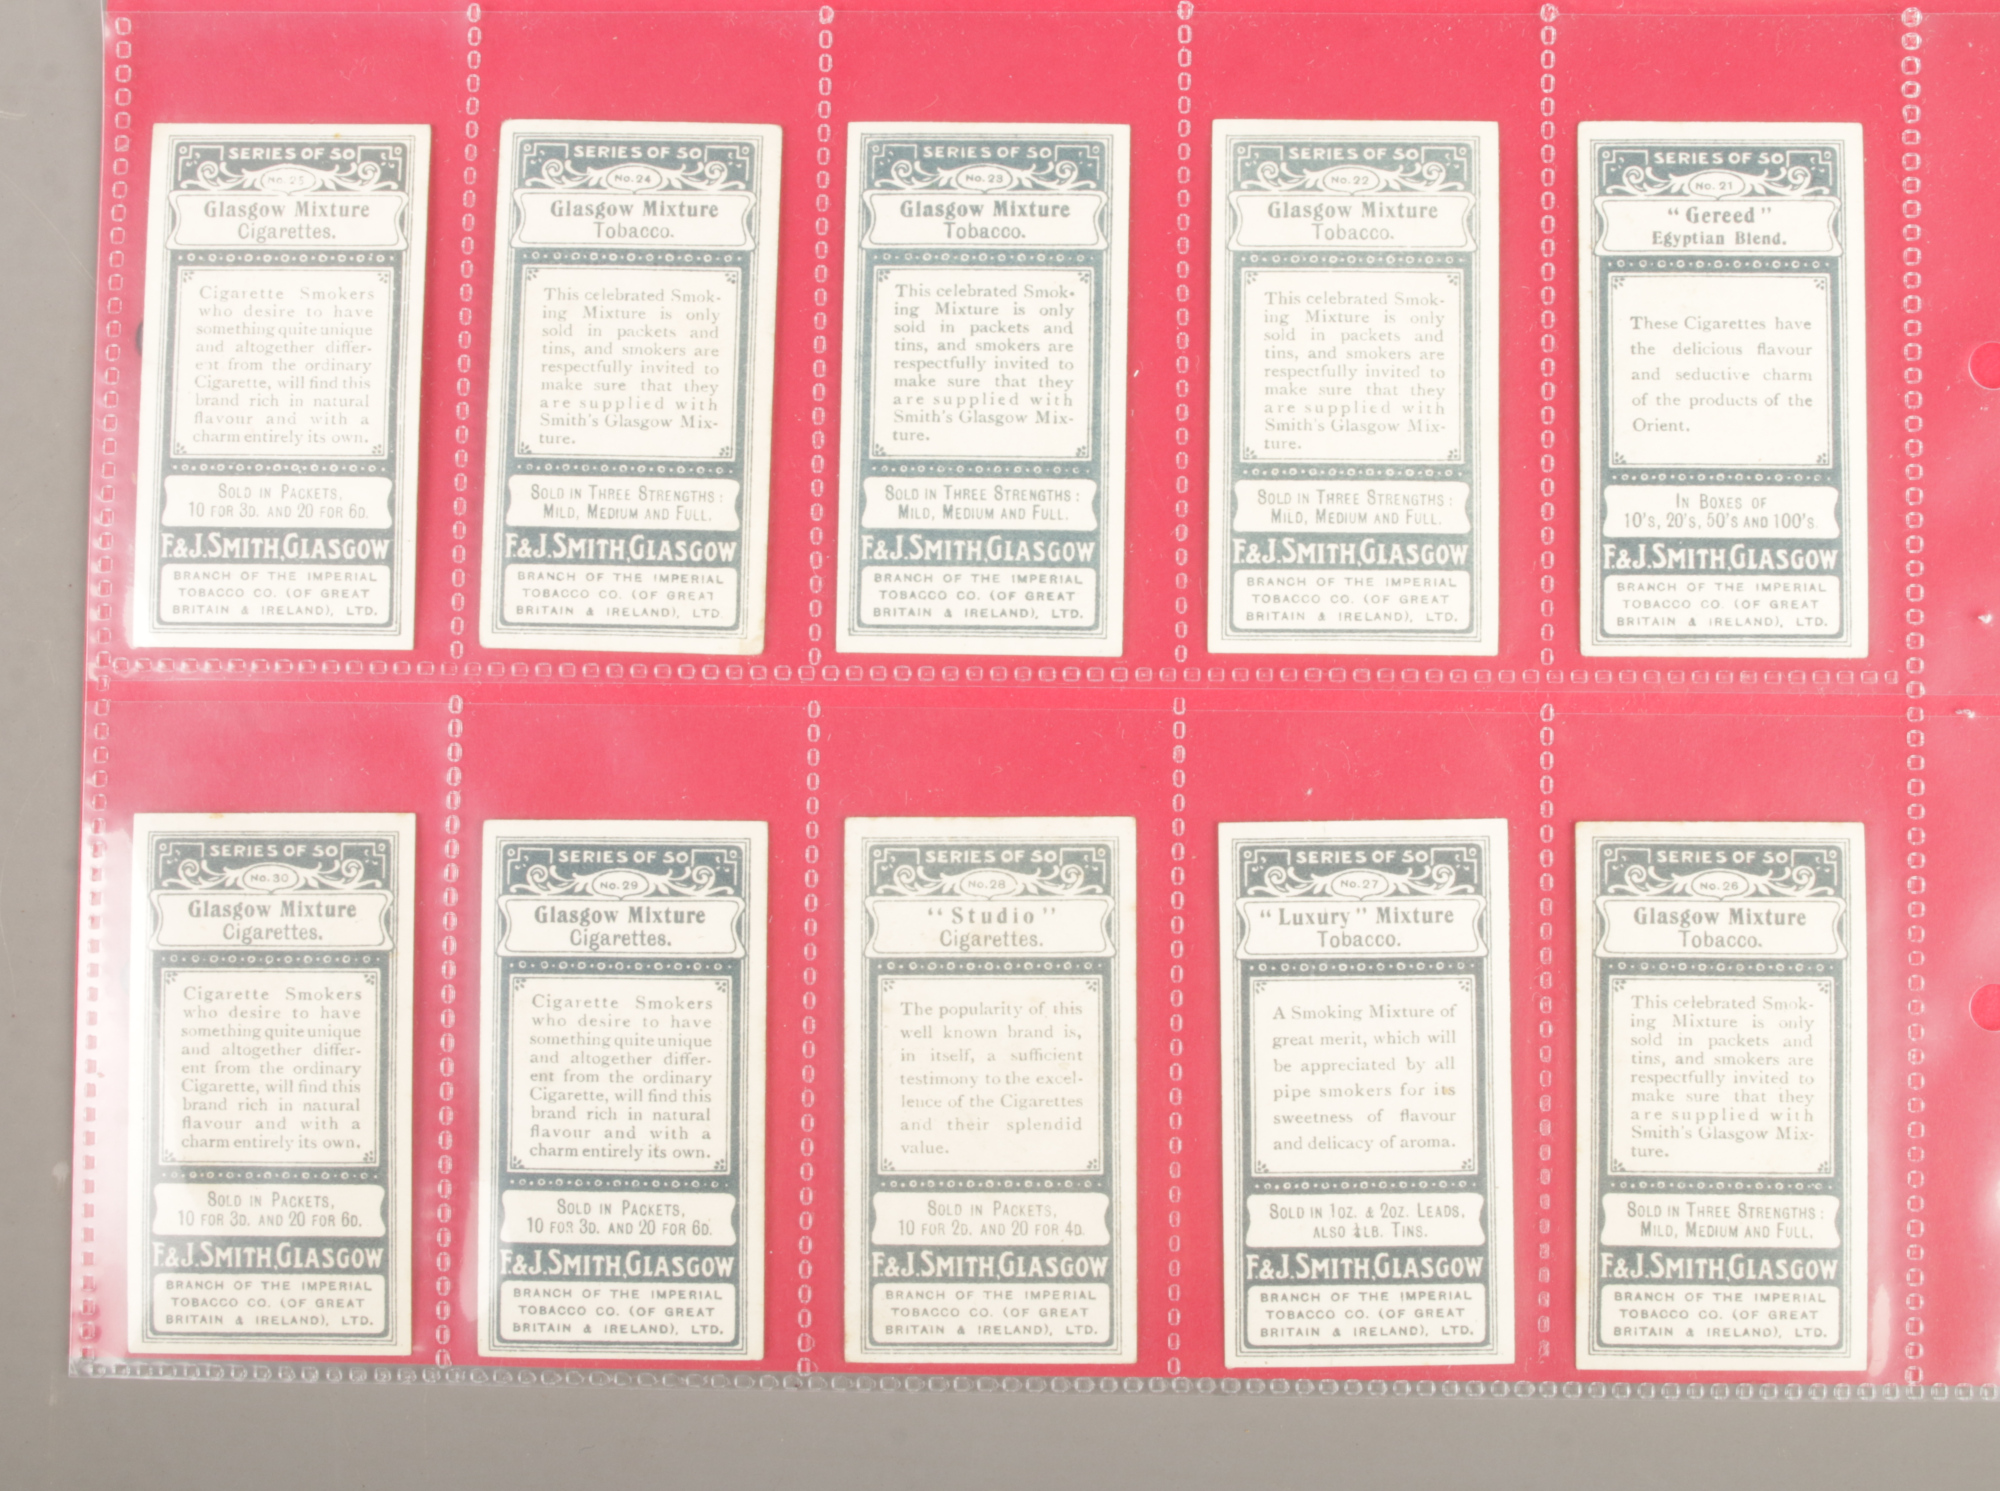 SERIES OF 50
No. 25
Glasgow Mixture
Cigarettes.
Cigarette Smokers
who desire to have
something quite unique
and altogether differ-
ent from the ordinary
Cigarette, will find this
brand rich in natural
flavour and with a
charm entirely its own.
SOLD IN PACKETS,
10 FOR 3D. AND 20 FOR 6D.
F.&J.SMITH,GLASGOW
BRANCH OF THE IMPERIAL
TOBACCO CO. (OF GREAT
BRITAIN & IRELAND), LTD.
SERIES OF 50
No. 24
Glasgow Mixture
Tobacco.
This celebrated Smok-
ing Mixture is only
sold in packets and
tins, and smokers are
respectfully invited to
make sure that they
are supplied with
Smith's Glasgow Mix-
ture.
SOLD IN THREE STRENGTHS:
MILD, MEDIUM AND FULL.
F.&J.SMITH,GLASGOW
BRANCH OF THE IMPERIAL
TOBACCO CO. (OF GREAT
BRITAIN & IRELAND), LTD
SERIES OF 50
No. 23
Glasgow Mixture
Tobacco.
This celebrated Smok-
ing Mixture is only
sold in packets and
tins, and smokers are
respectfully invited to
make sure that they
are supplied with
Smith's Glasgow Mix-
ture.
SOLD IN THREE STRENGTHS:
MILD, MEDIUM AND FULL.
F.&J.SMITH,GLASGOW
BRANCH OF THE IMPERIAL
TOBACCO CO. (OF GREAT
BRITAIN & IRELAND), LTD.
SERIES OF 50
No. 22
Glasgow Mixture
Tobacco.
This celebrated Smok-
ing Mixture is only
sold in packets and
tins, and smokers are
respectfully invited to
make sure that they
are supplied with
Smith's Glasgow Mix-
ture.
SOLD IN THREE STRENGTHS:
MILD, MEDIUM AND FULL.
F.&J.SMITH,GLASGOW
BRANCH OF THE IMPERIAL
TOBACCO CO. (OF GREAT
BRITAIN & IRELAND), LTD.
SERIES OF 50
No. 21
"Gereed"
Egyptian Blend.
These Cigarettes have
the delicious flavour
and seductive charm
of the products of the
Orient.
IN BOXES OF
10's, 20's, 50's AND 100's
F.&J.SMITH,GLASGOW
BRANCH OF THE IMPERIAL
TOBACCO CO. (OF GREAT
BRITAIN & IRELAND), LTD.
SERIES OF 50
No. 30
Glasgow Mixture
Cigarettes.
Cigarette Smokers
who desire to have
something quite unique
and altogether differ-
ent from the ordinary
Cigarette, will find this
brand rich in natural
flavour and with a
charm entirely its own.
SOLD IN PACKETS,
10 FOR 3D. AND 20 FOR 6D.
F.&J.SMITH,GLASGOW
BRANCH OF THE IMPERIAL
TOBACCO CO. (OF GREAT
BRITAIN & IRELAND), LTD.
SERIES OF 50
No. 29
Glasgow Mixture
Cigarettes.
Cigarette Smokers
who desire to have
something quite unique
and altogether differ-
ent from the ordinary
Cigarette, will find this
brand rich in natural
flavour and with a
charm entirely its own.
SOLD IN PACKETS,
10 FOR 3D. AND 20 FOR 6D.
F.&J.SMITH,GLASGOW
BRANCH OF THE IMPERIAL
TOBACCO CO. (OF GREAT
BRITAIN & IRELAND), LTD.
SERIES OF 50
No. 28
"Studio"
Cigarettes.
The popularity of this
well known brand is,
in itself, a sufficient
testimony to the excel-
lence of the Cigarettes
and their splendid
value.
SOLD IN PACKETS,
10 FOR 2D. AND 20 FOR 4D.
F.&J.SMITH,GLASGOW
BRANCH OF THE IMPERIAL
TOBACCO CO. (OF GREAT
BRITAIN & IRELAND), LTD.
SERIES OF 50
No. 27
"Luxury" Mixture
Tobacco.
A Smoking Mixture of
great merit, which will
be appreciated by all
pipe smokers for its
sweetness of flavour
and delicacy of aroma.
SOLD IN 1OZ. & 2OZ. LEADS,
ALSO ¼LB. TINS.
F.&J.SMITH,GLASGOW
BRANCH OF THE IMPERIAL
TOBACCO CO. (OF GREAT
BRITAIN & IRELAND), LTD.
SERIES OF 50
No. 26
Glasgow Mixture
Tobacco.
This celebrated Smok-
ing Mixture is only
sold in packets and
tins, and smokers are
respectfully invited to
make sure that they
are supplied with
Smith's Glasgow Mix-
ture.
SOLD IN THREE STRENGTHS:
MILD, MEDIUM AND FULL.
F.&J.SMITH,GLASGOW
BRANCH OF THE IMPERIAL
TOBACCO CO. (OF GREAT
BRITAIN & IRELAND), LTD.